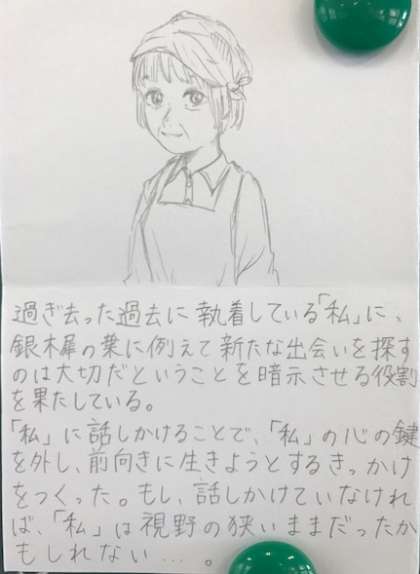 過ぎ去った過去に執着している「私」に、
銀木犀の葉に例えて新たな出会いを探す
のは大切だということを暗示させる役割
を果たしている。
「私」に話しかけることで、「私」の心の鍵
を外し、前向きに生きようとするきっかけ
をつくった。もし、話しかけていなけれ
ば、「私」は視野の狭いままだったか
もしれない…。